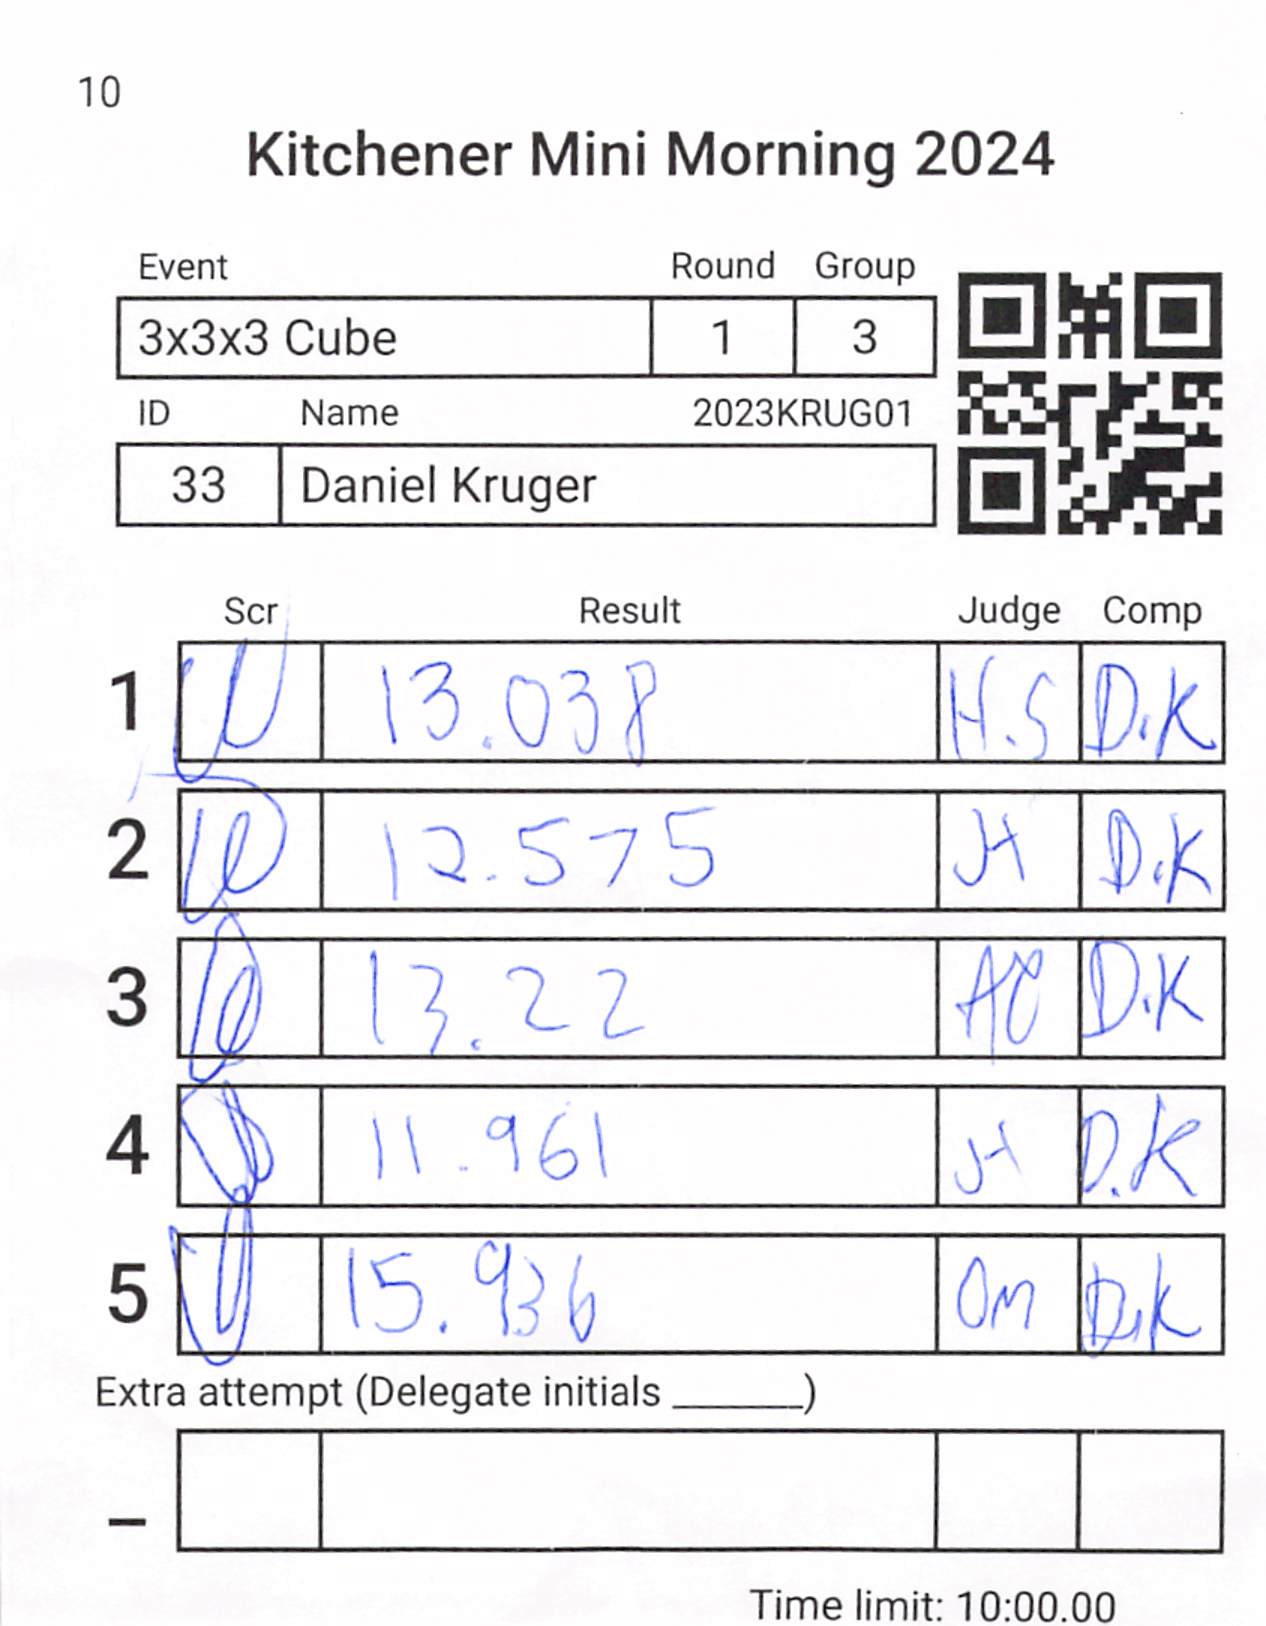 10
Kitchener Mini Morning 2024
Event Round Group
3x3x3 Cube 1 3
ID Name 2023KRUG01
33 Daniel Kruger
Scr Result Judge Comp
1 13.038 H.S D.K
2 12.575 JH D.K
3 13.22 AC D.K
4 11.961 JH D.K
5 15.936 OM D.K
Extra attempt (Delegate initials ______)
–
Time limit: 10:00.00